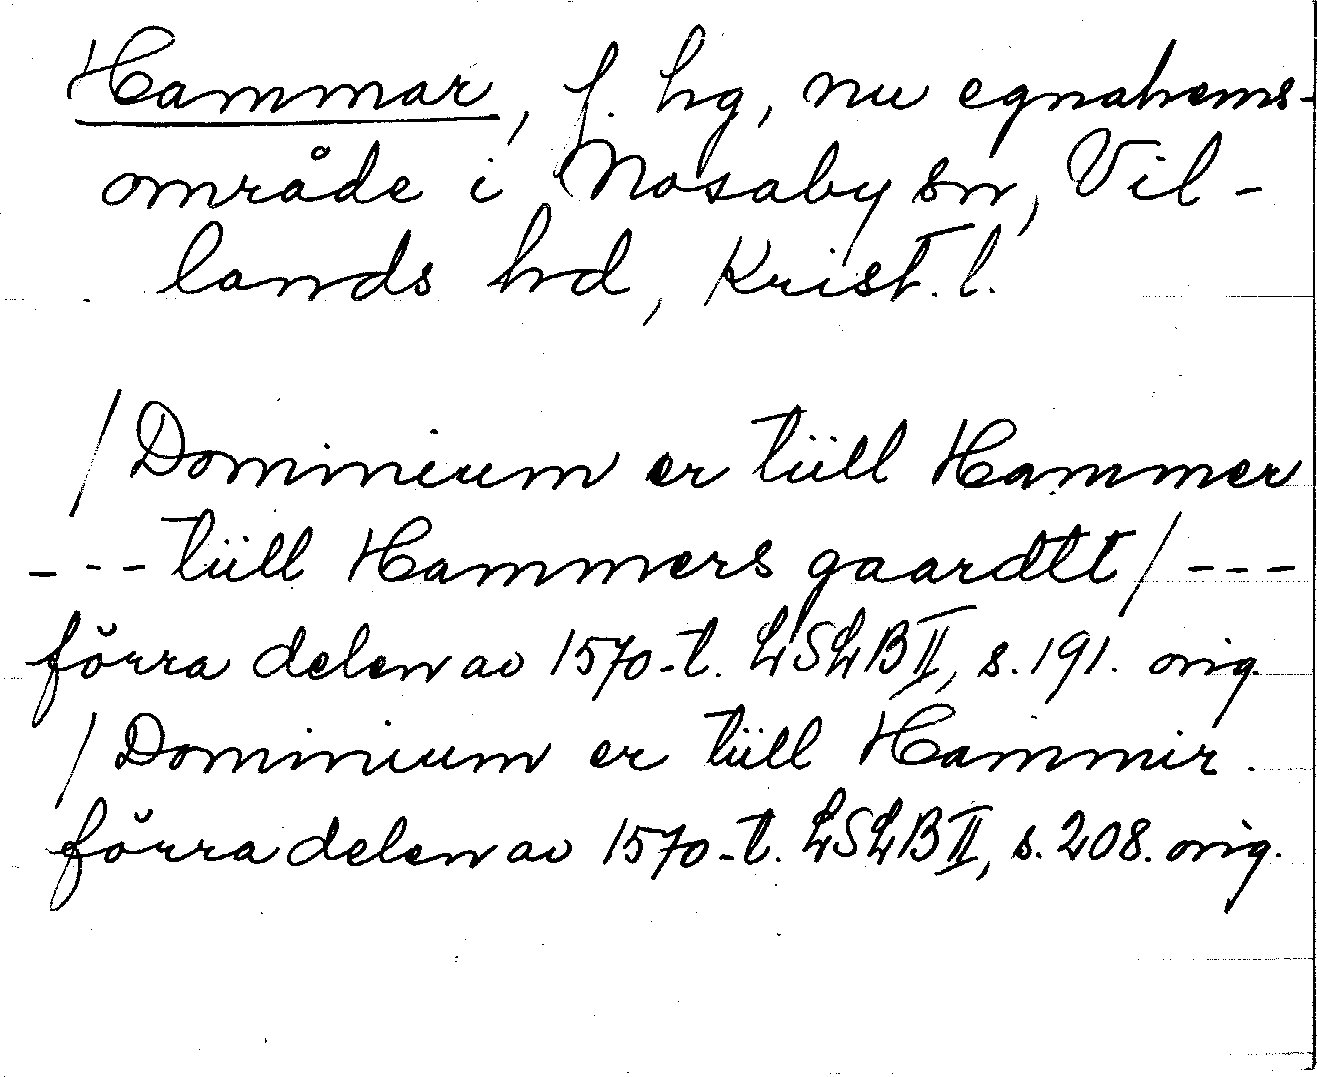 Hammar, f. hg, nu egnahems-
område i Nosaby sn, Vil-
lands hd, Krist. l.
/Dominium er tiill Hammer
--- tiill Hammers gaardtt/---
förra delen av 1570-t. LSLB II, s. 191. orig.
/Dominium er tiill Hammir.
förra delen av 1570-t. LSLB II, s. 208. orig.